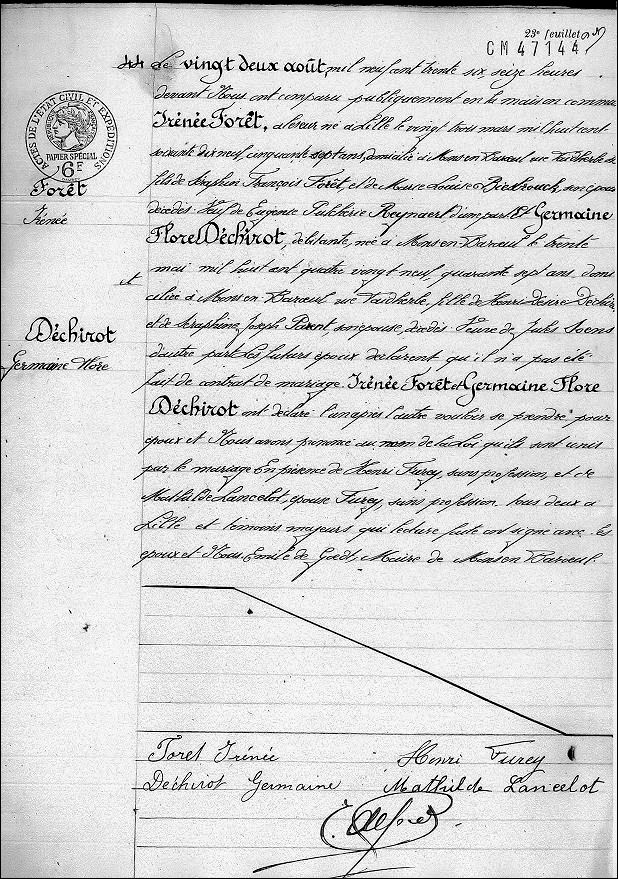 23e feuillet
CM 47144
44 Le vingt deux août mil neuf cent trente six, seize heures
devant Nous ont comparu publiquement en la maison commune
Irénée Forêt, né à Lille le vingt trois mars mil huit cent
soixante dix neuf, cinquante sept ans, domicilié à Mons en Baroeul rue Faidherbe
fils de Seraphin François Forêt, et de Marie Louise son épouse
décédés. Veuf de Eugénie Pulchérie Reynaert d'une part Et Germaine
Flore Déchirot, débitante, née à Mons en Baroeul le trente
mai mil huit cent quatre vingt neuf, quarante sept ans, domi
ciliée à Mons en Baroeul rue Faidherbe, fille de Henri Desiré Déchirot
et de Séraphine Joseph Parent, son épouse, décédés. Veuve de Jules
d'autre part Les futurs époux déclarent qu'il n'a pas été
fait de contrat de mariage. Irénée Forêt et Germaine Flore
Déchirot ont déclaré l'un après l'autre vouloir se prendre pour
époux et Nous avons prononcé au nom de la Loi qu'ils sont unis
par le mariage En présence de Henri Furey, sans profession, et de
Mathilde Lancelot, épouse Furey, sans profession tous deux à
Lille et témoins majeurs qui lecture faite ont signé avec les
époux et Nous, Emile de Goedt, Maire de Mons en Baroeul.
ACTES DE L'ETAT CIVIL ET EXPEDITIONS
PAPIER SPÉCIAL
6F
Forêt
Irénée
et
Déchirot
Germaine Flore
Foret Irénée
Henri Furey
Dechirot Germaine
Mathilde Lancelot